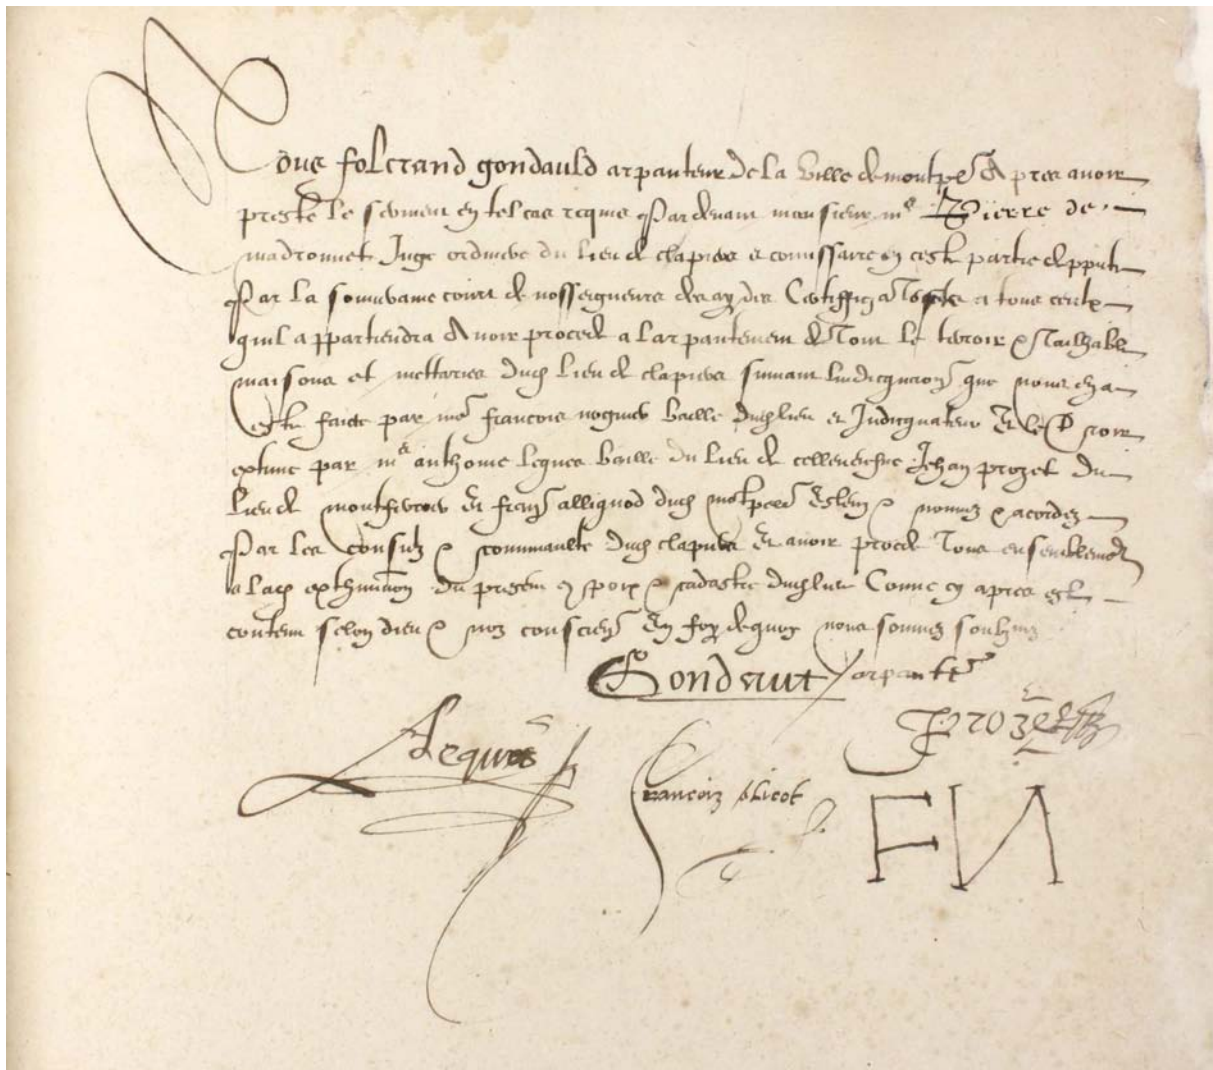 Nous folcrand gondauld arpanteur de la ville de montper Apres avoir
preste le serment en tel cas requis Par devant monsieur me Pierre de
madronnet Juge ordinere du lieu de clapies et comissaire en ceste partie depputé
Par la souveraine court de nosseigneurs des aydes Certiffions a tous ceulx
quil appartiendra Avoir procede a larpantement de Tout le terroir Tailhable
maisons et mettaries dud lieu de clapies suivant lindicquation que nous en a
este faicte par me francois noguies baille dud lieu et Indicquateur Et led
extime par me anthoine leques baille du lieu de celleneufve Jehan prozet du
lieu de montferrier Et francs alliquod dud montpeer nommes et acordes
Par les consulz et communaulte dud clapies Et avoir procede Tous ensemblement
a lad extimation du present compoix et cadastre dud lieu Comme cy apres est
contenu selon dieu et noz consciens En foy de quoy nous sommes soubzsignes
Gondaut arpantr
prozet
Leques
francois alicot
FN